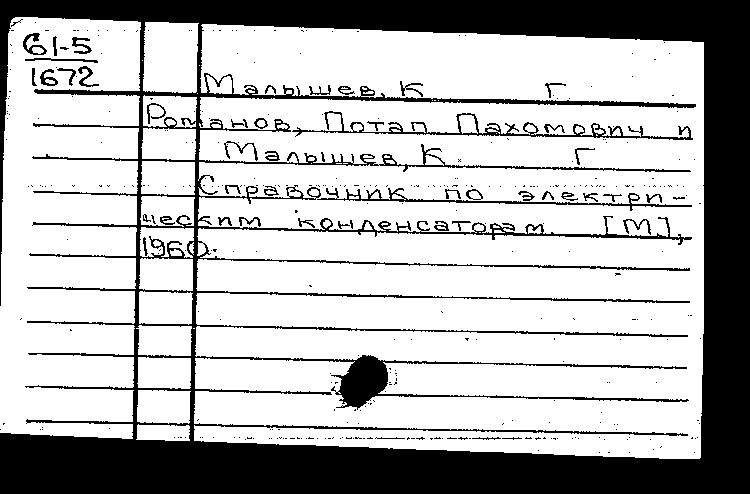 61-5
1672
Малышев, К Г
Романов, Потап Пахомович и
Малышев, К Г
Справочник по электри-
ческим конденсаторам. [М.],
1960.